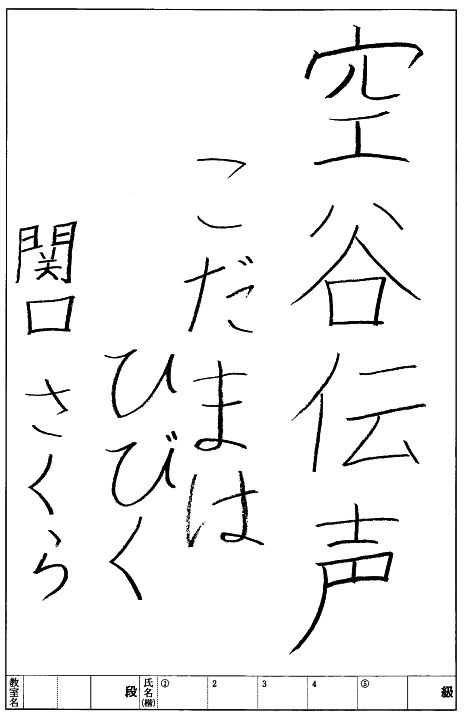 空谷伝声
こだまは
ひびく
関口さくら
級 ⑤ 4 3 2 ① 氏名(楷) 段 教室名